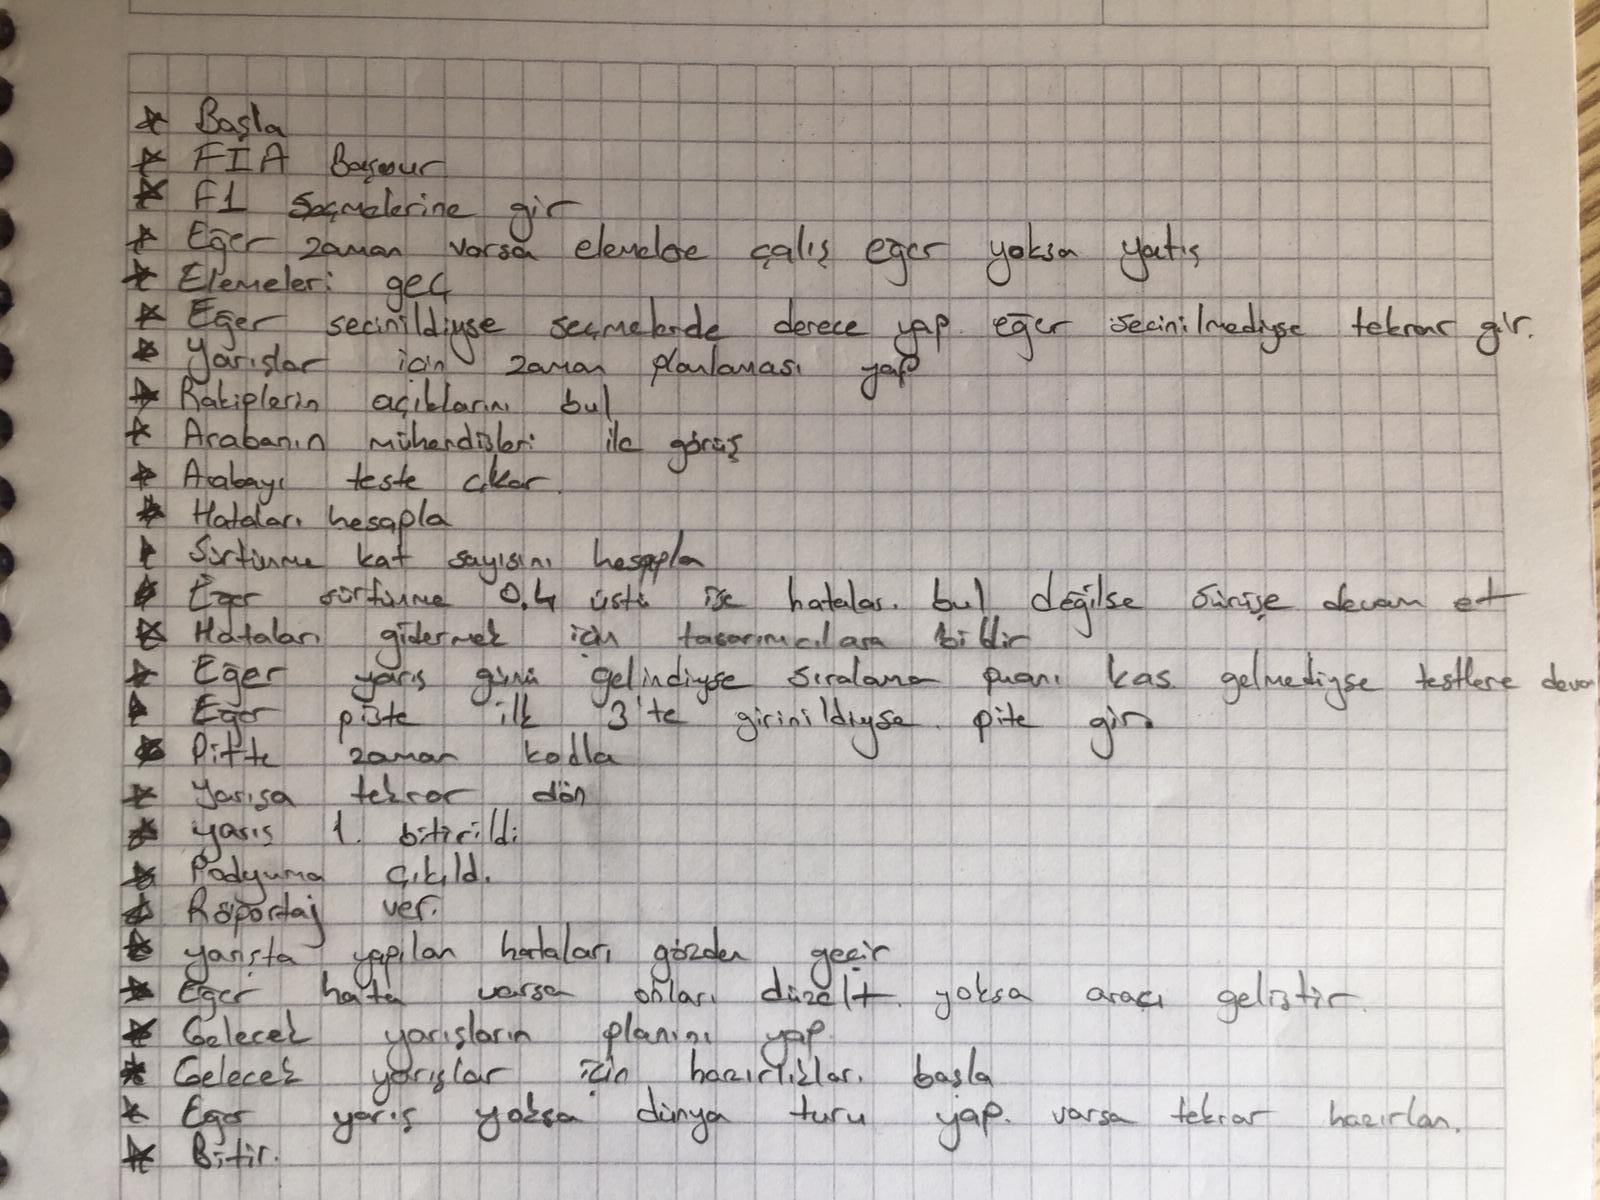 * Başla
* FIA Başvur
* F1 Seçmelerine gir
* Eğer zaman varsa elemelere çalış eğer yoksa yatış
* Elemeleri geç
* Eğer secinildiyse seçmelerde derece yap. eğer secinilmediyse tekrar gir.
* Yarışlar için zaman planlaması yap
* Rakiplerin açıklarını bul
* Arabanın mühendisleri ile görüş
* Arabayı teste çıkar.
* Hataları hesapla
* Sürtünme kat sayısını hesapla
* Eğer sürtünme 0.4 üstü ise hataları bul değilse sürüşe devam et
* Hataları gidermek için tasarımcılara bildir
* Eğer yarış günü gelindiyse sıralama puanı kas gelmediyse testlere devam
* Eğer piste ilk 3'te girinildiyse pite gir.
* Pitte zaman kodla
* Yarışa tekrar dön
* yarış 1. bitirildi
* Podyuma çıkıldı.
* Röportaj ver.
* yarışta yapılan hataları gözden geçir
* Eğer hata varsa onları düzelt yoksa aracı geliştir.
* Gelecek yarışların planını yap.
* Gelecek yarışlar için hazırlıkları başla
* Eğer yarış yoksa dünya turu yap. varsa tekrar hazırlan.
* Bitir.